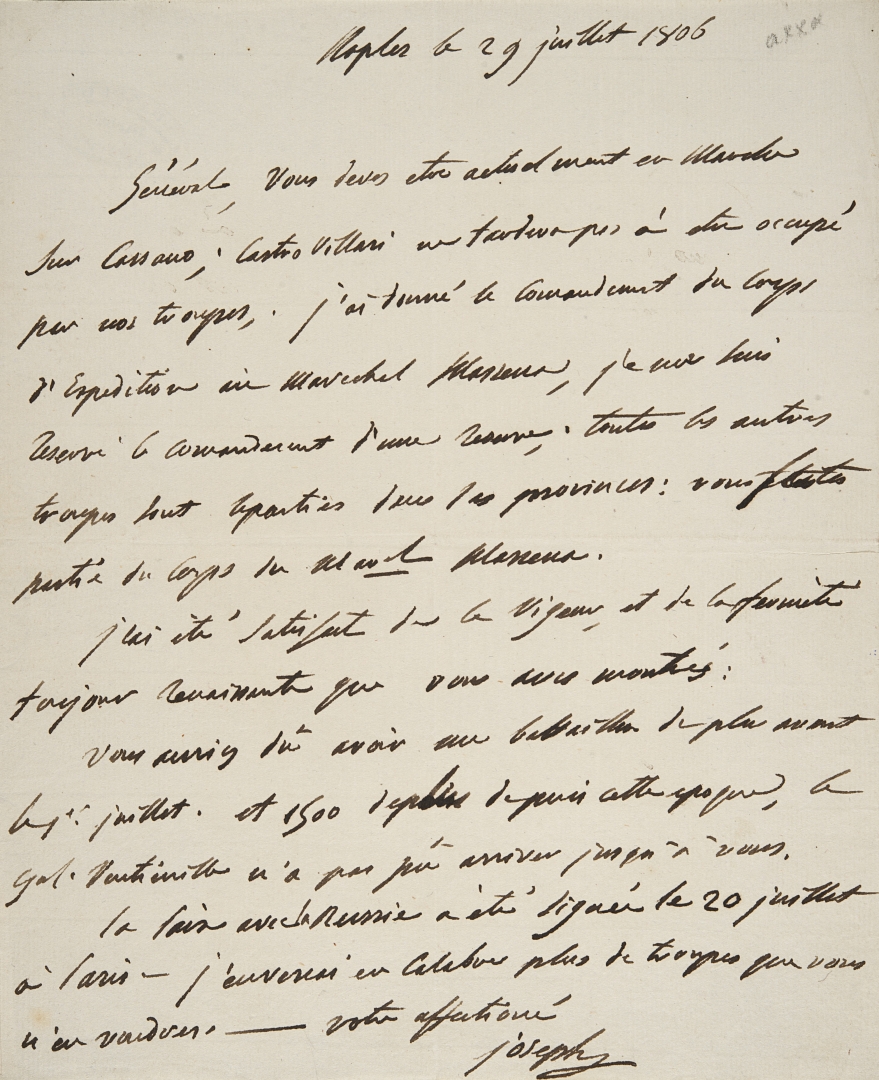 Naples le 29 juillet 1806
Général, Vous devez etre actuelment en Marche
sur Cassano; CastroVillari ne tardera pas à etre occupé
par nos troupes,. j'ai donné le Comandement du Corps
d'Expedition au Marechal Massena, je me suis
reservé le comandement d'une reserve; toutes les autres
troupes sont reparties dans les provinces: vous faites
partie du Corps du Mal Massena.
j'ai été satisfait de la Vigeur, et de la fermeté
toujour renaissante que vous avez montrés:
Vous auriez dû avoir un battaillon de plus avant
le 1er juillet. et 1500 de plus depuis cette epoque, le
Gal. n'a pas pû arriver jusqu'à vous.
la Paix avec la Russie a été signée le 20 juillet
à Paris — j'enverai en Calabre plus de troupes que vous
n'en voudrez. — votre affectioné
joseph